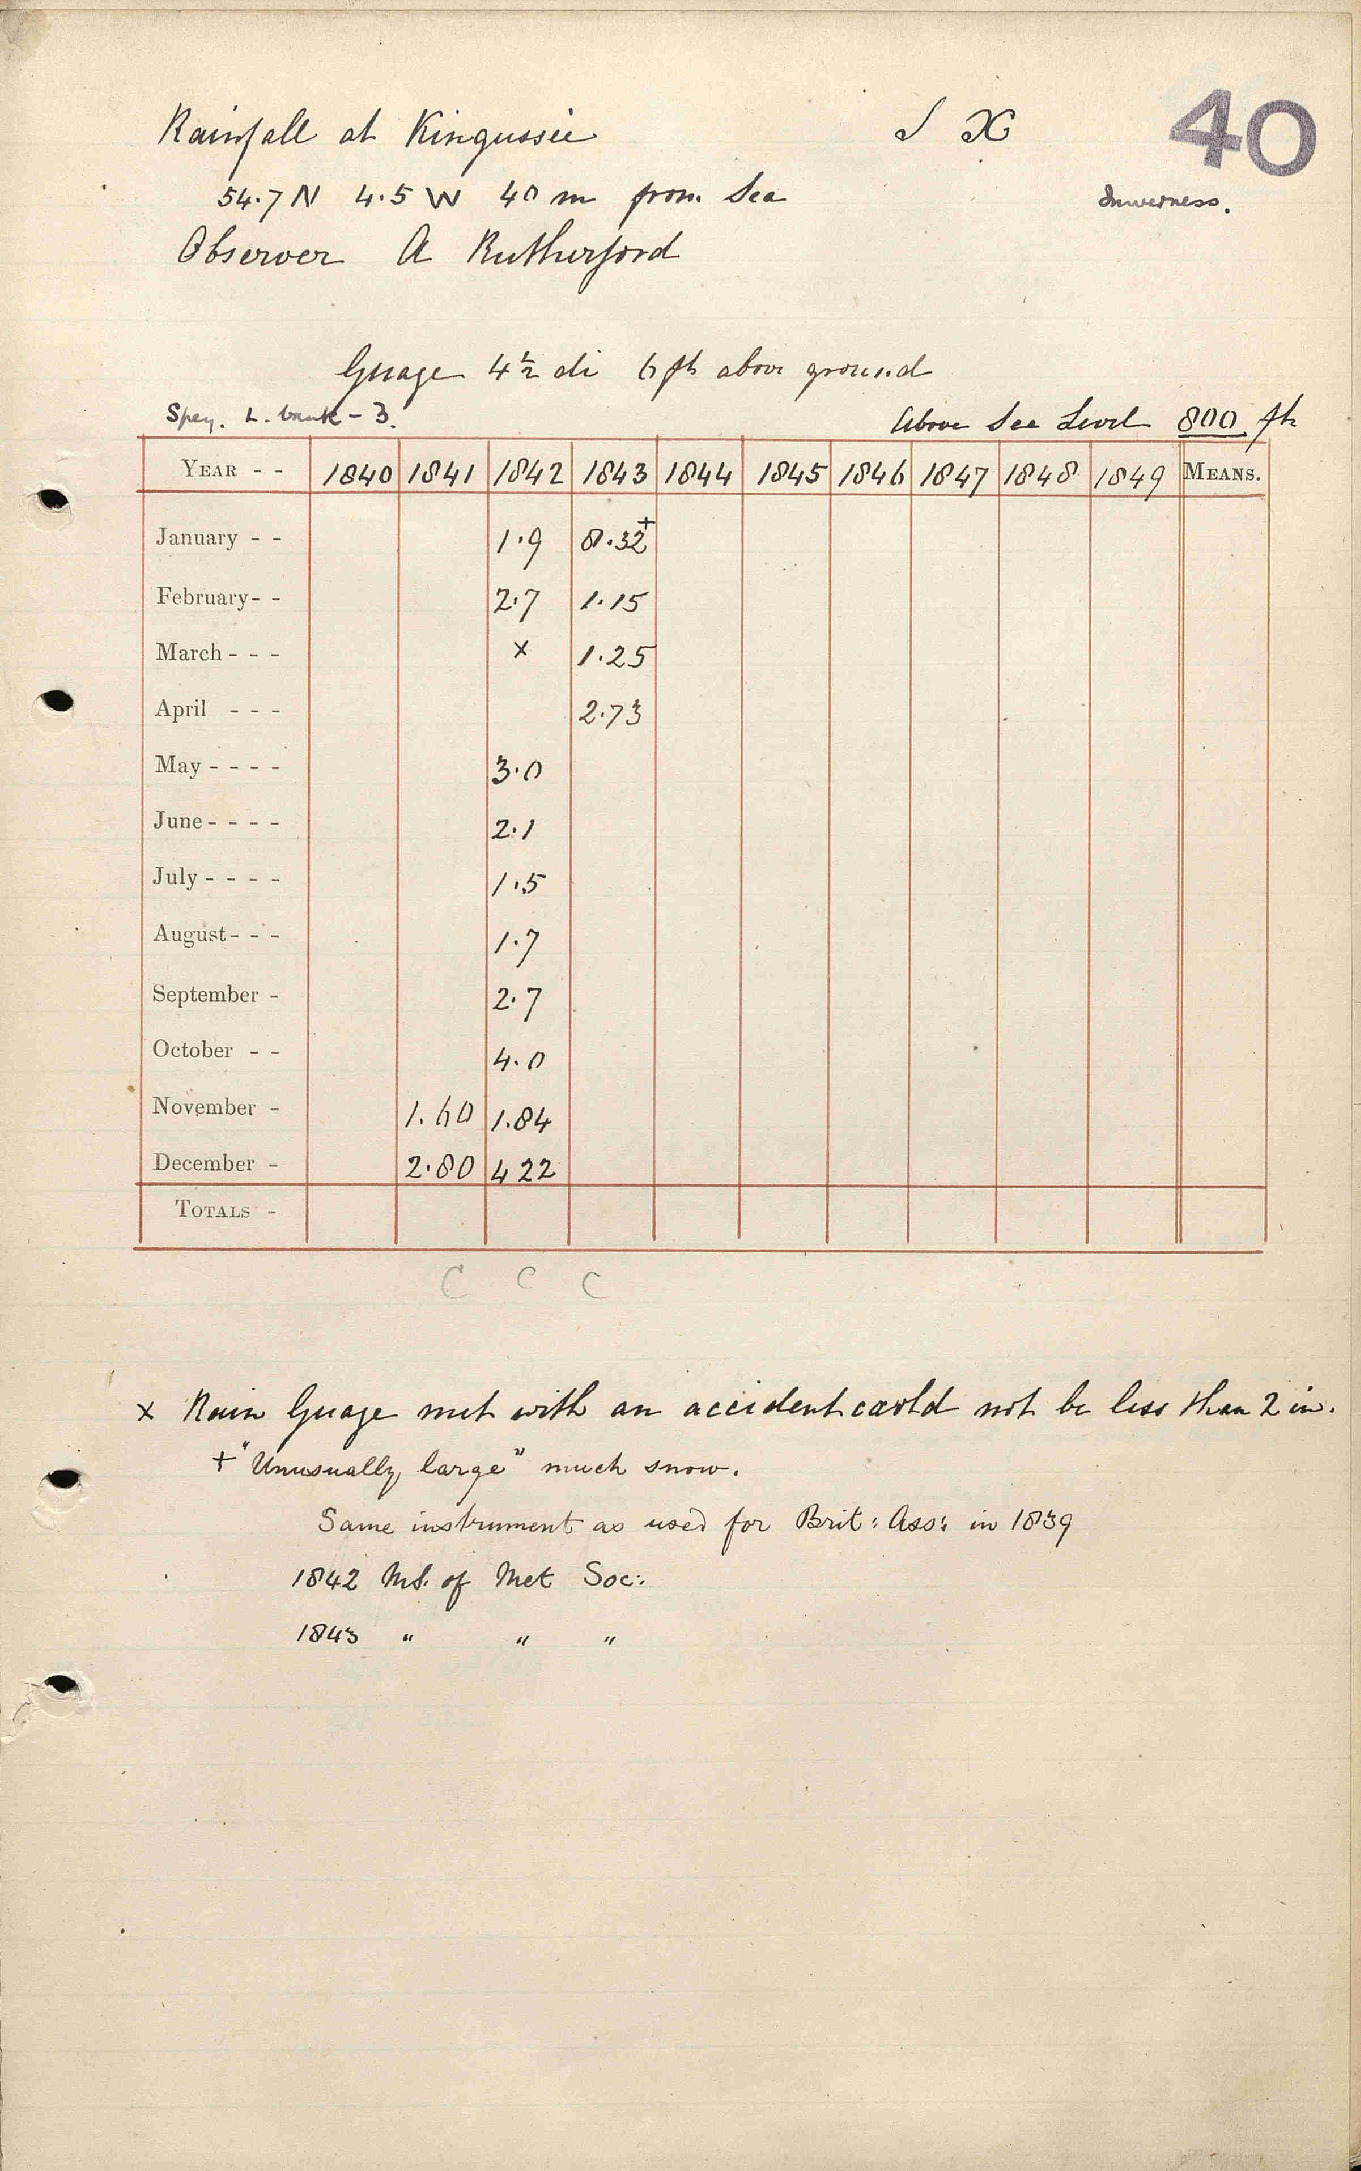 Rainfall at Kingussie
40
54.7 N 4.5 W 40 m from Sea
Inverness.
Observer A Rutherford
Guage 4½ di 6 ft above ground
Spey. L. bank - 3.
Above Sea Level 800 ft
YEAR - - 1840 1841 1842 1843 1844 1845 1846 1847 1848 1849 MEANS.
January - - 1.9 8.32+
February - - 2.7 1.15
March - - - x 1.25
April - - - 2.73
May - - - - 3.0
June - - - - 2.1
July - - - - 1.5
August - - - 1.7
September - 2.7
October - - 4.0
November - 1.60 1.84
December - 2.80 4 22
TOTALS -
C C C
x Rain Guage met with an accident could not be less than 2 in.
+ "Unusually large" much snow.
Same instrument as used for Brit: Ass: in 1839
1842 MS. of Met Soc:
1843 " " "